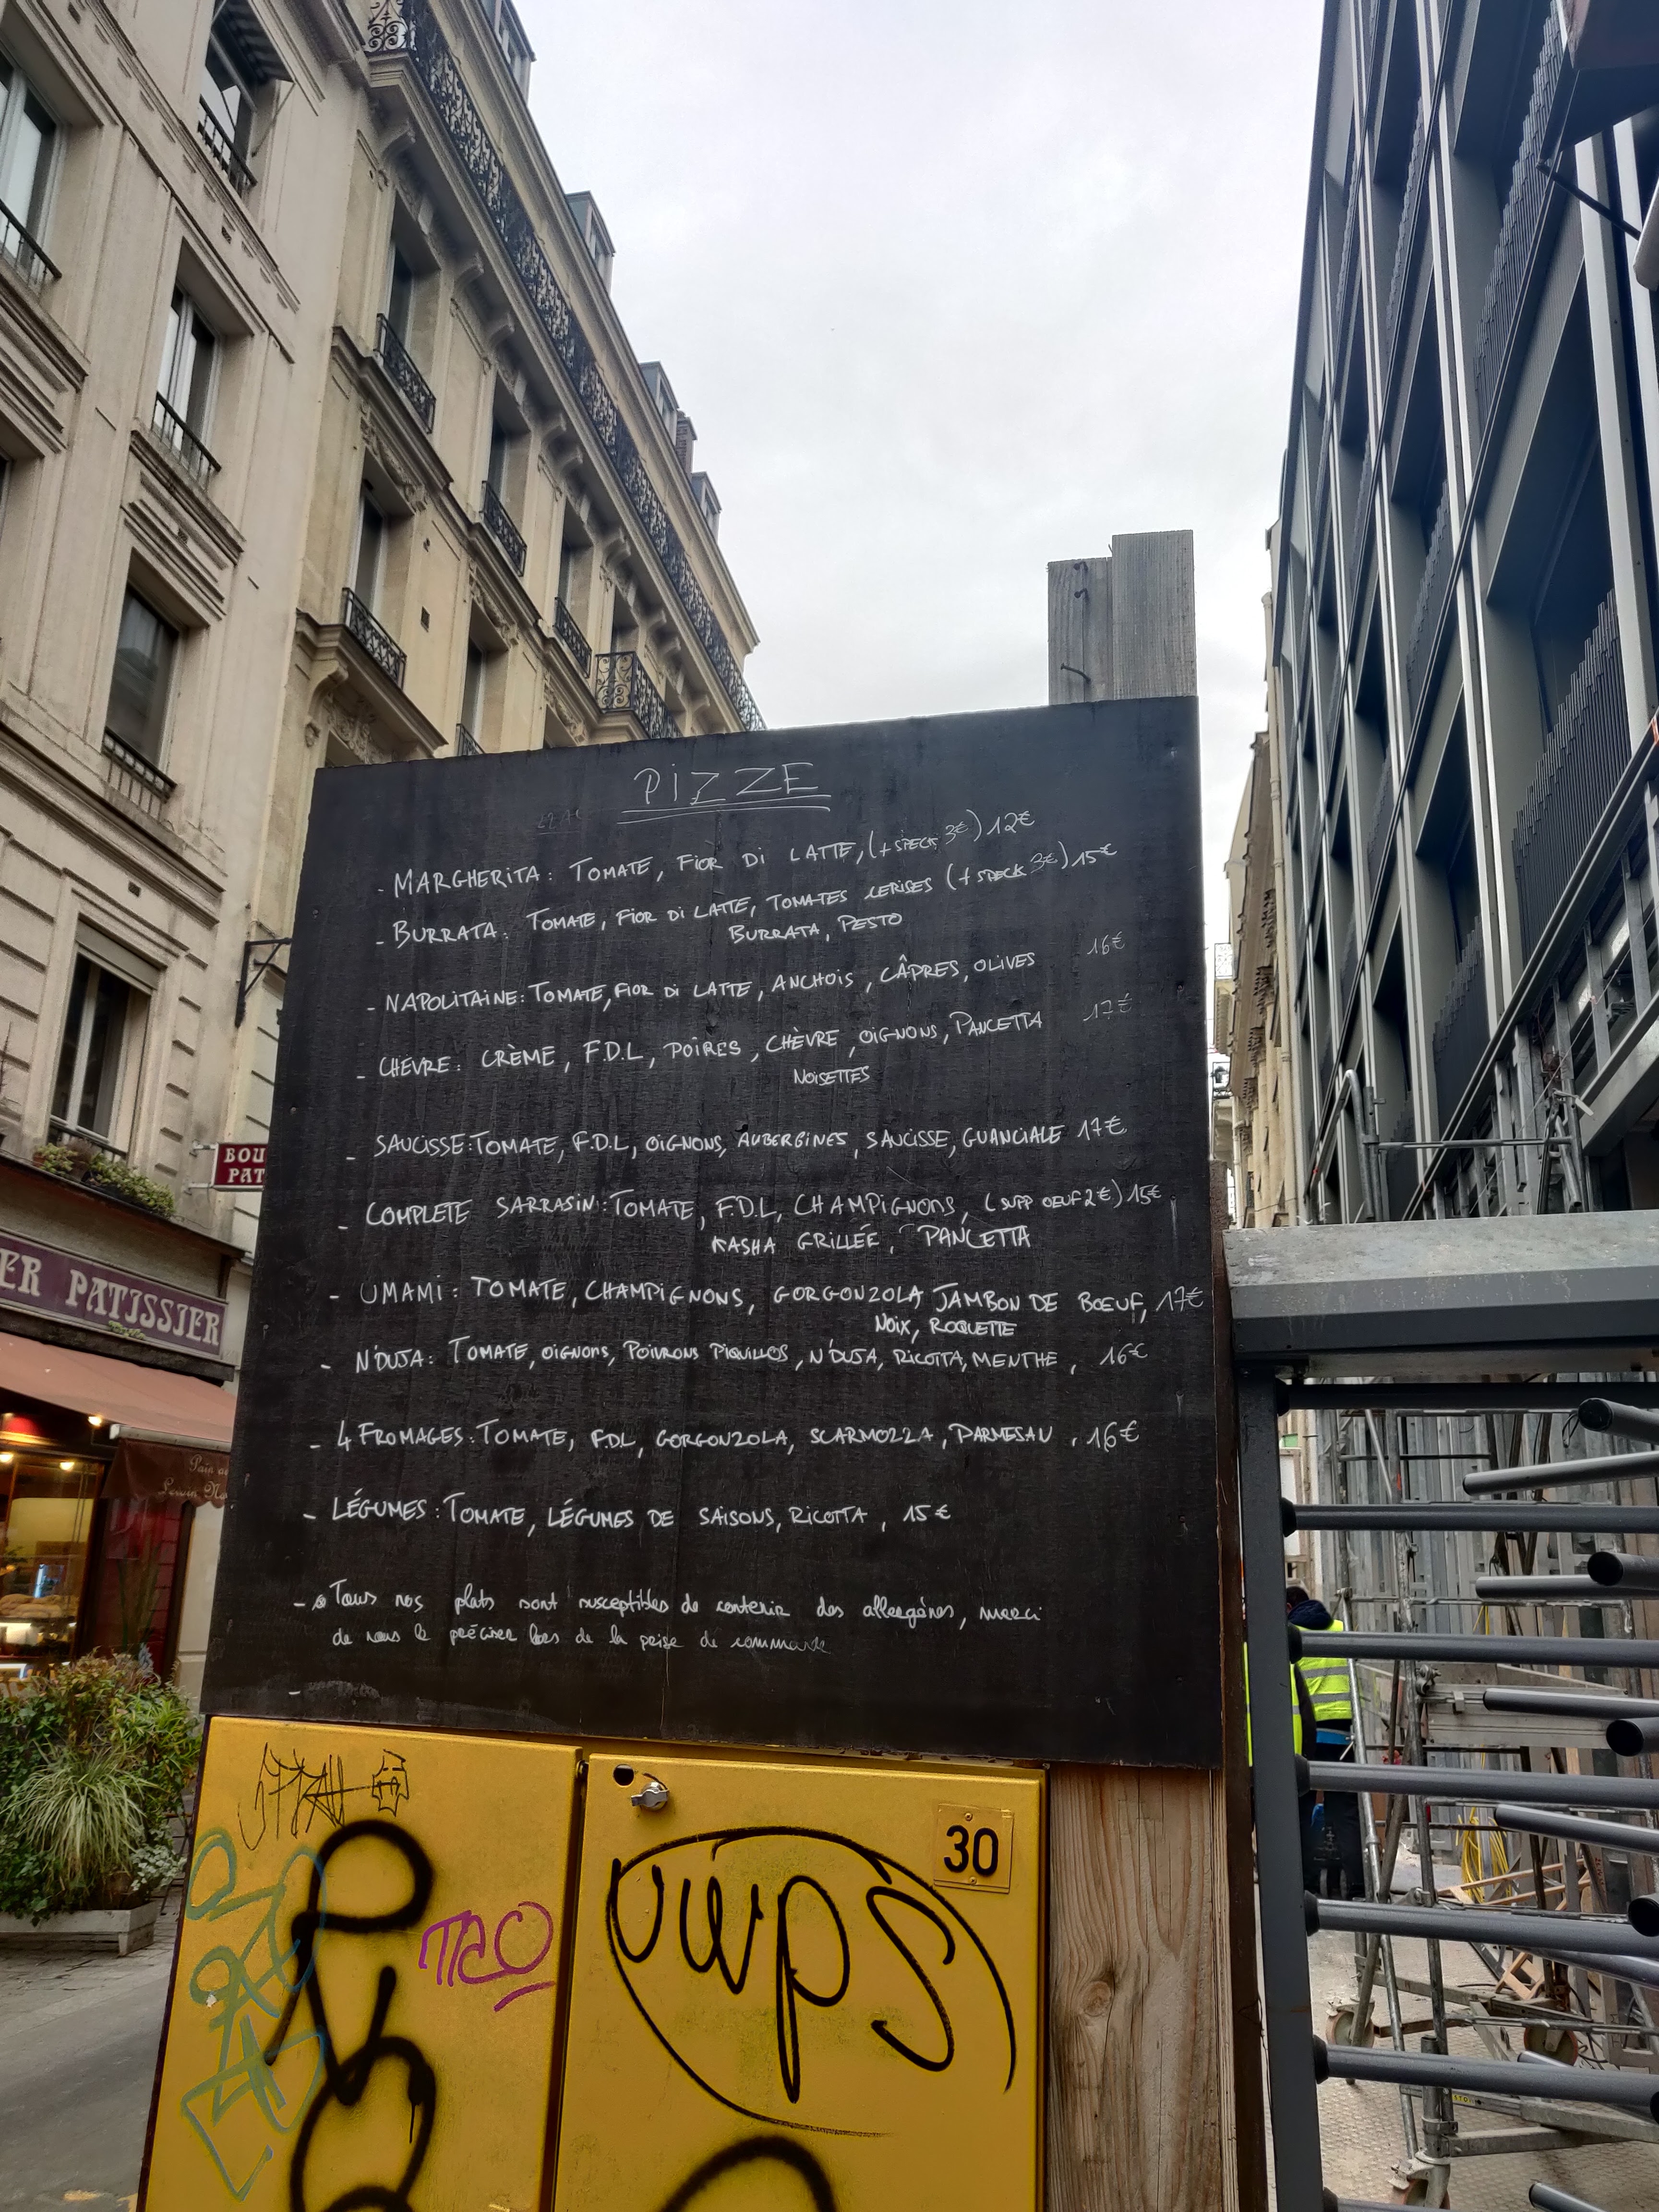 PIZZE
- MARGHERITA : TOMATE, FIOR DI LATTE, (+ SPECK 3€) 12€
- BURRATA : TOMATE, FIOR DI LATTE, TOMATES CERISES (+ SPECK 3€) 15€
BURRATA, PESTO
- NAPOLITAINE : TOMATE, FIOR DI LATTE, ANCHOIS, CÂPRES, OLIVES 16€
- CHEVRE : CRÈME, F.D.L, POIRES, CHÈVRE, OIGNONS, PANCETTA 17€
NOISETTES
- SAUCISSE : TOMATE, F.D.L, OIGNONS, AUBERGINES, SAUCISSE, GUANCIALE 17€
- COMPLETE SARRASIN : TOMATE, F.D.L, CHAMPIGNONS, (SUPP OEUF 2€) 15€
KASHA GRILLÉE, PANCETTA
- UMAMI : TOMATE, CHAMPIGNONS, GORGONZOLA, JAMBON DE BOEUF, 17€
NOIX, ROQUETTE
- N'DUJA : TOMATE, OIGNONS, POIVRONS PIQUILLOS, N'DUJA, RICOTTA, MENTHE, 16€
- 4 FROMAGES : TOMATE, FDL, GORGONZOLA, SCARMOZZA, PARMESAN, 16€
- LÉGUMES : TOMATE, LÉGUMES DE SAISONS, RICOTTA, 15€
- Tous nos plats sont susceptibles de contenir des allergènes, merci
de nous le préciser lors de la prise de commande
BOU
PAT
ER PATISSIER
Pain
30
TACO
uwps